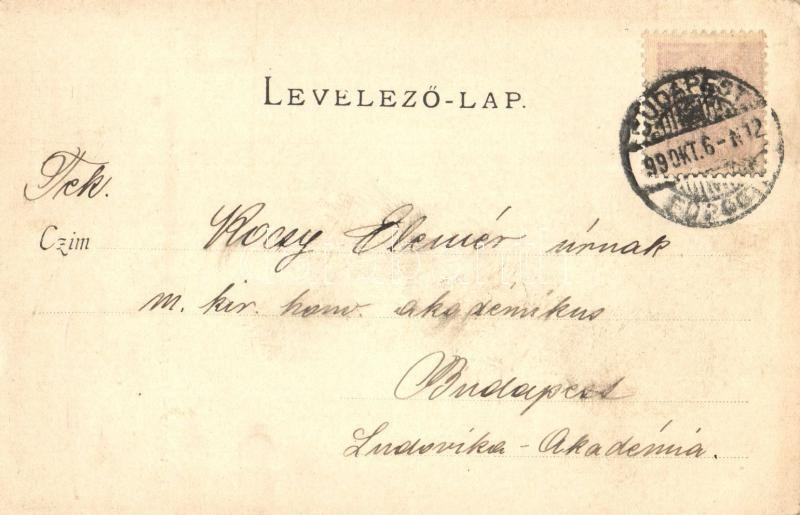 LEVELEZŐ-LAP.
BUDAPEST
99 OKT. 6 - N 12
Tek.
Czim Kocsy Elemér úrnak
m. kir. honv. akadémikus
Budapest
Ludovika - Akadémia.